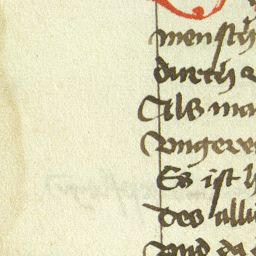 mensch
durch
Als ma
Vngere
Es ist h
Des allu
Vnd da